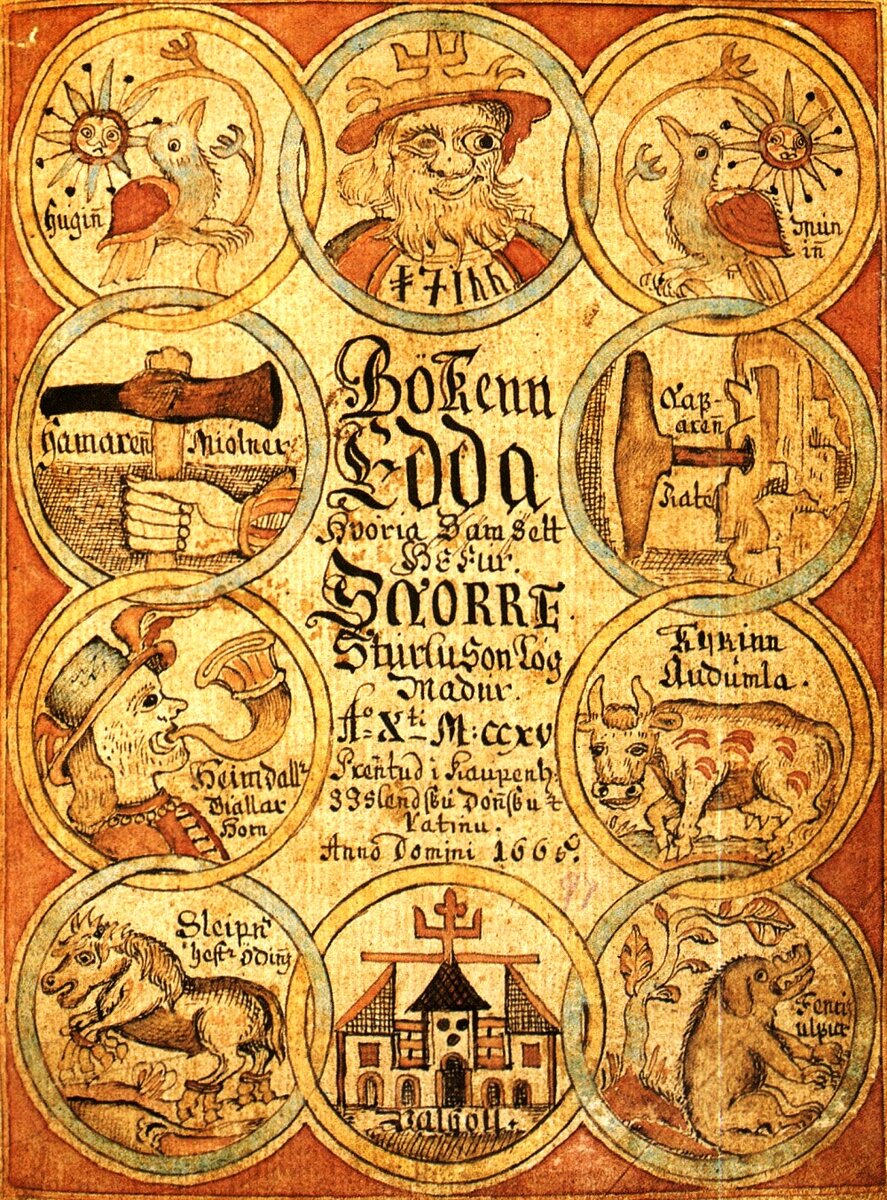 Hugin̄
Mún
in̄
Bökenn
Edda
Hvoria Sam sett
Hefur.
SNORRE.
Sturlu Son Lög
Madur.
Aº Xti M:CCXV
Prentud i Kaupenh:
Islendsku Dön̄sku
Latinu.
Anno Domini 1665.
Hamaren̄ Miolner
Naβ-
aren̄
Rate
Heimdallr
Giallar
Horn
Kyrinn
Audumla.
Sleipnr
hestr odins
Valholl.
Fenris
ulfur